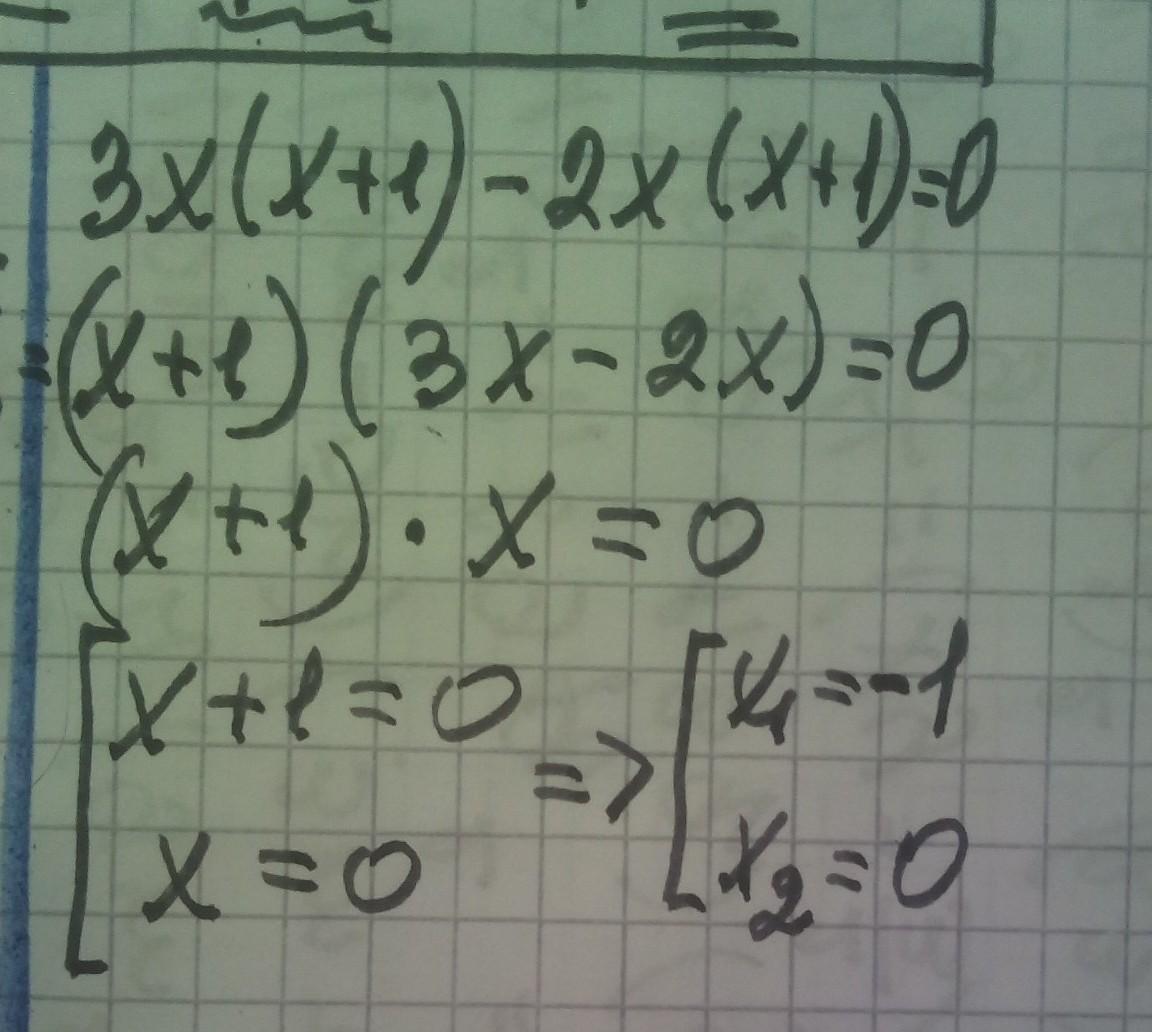 3x(x+1)-2x(x+1)=0
=(x+1)(3x-2x)=0
(x+1)·x=0
[x+1=0 => [x₁=-1
x=0 x₂=0